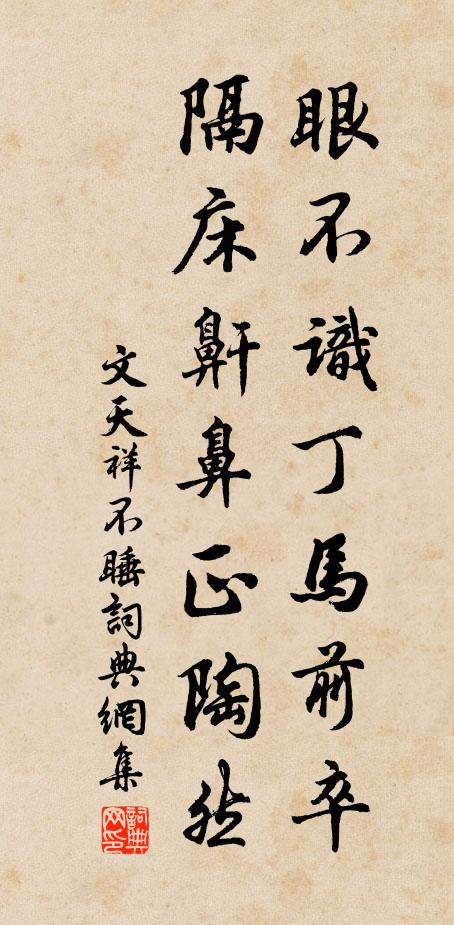 眼不識丁馬前卒
隔床鼾鼻正陶然
文天祥不睡詞典網集
詞典網印